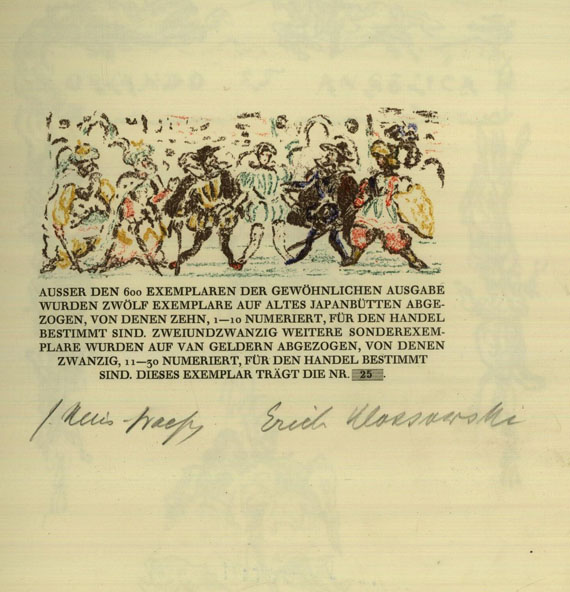 AUSSER DEN 600 EXEMPLAREN DER GEWÖHNLICHEN AUSGABE
WURDEN ZWÖLF EXEMPLARE AUF ALTES JAPANBÜTTEN ABGE-
ZOGEN, VON DENEN ZEHN, 1—10 NUMERIERT, FÜR DEN HANDEL
BESTIMMT SIND. ZWEIUNDZWANZIG WEITERE SONDEREXEM-
PLARE WURDEN AUF VAN GELDERN ABGEZOGEN, VON DENEN
ZWANZIG, 11—30 NUMERIERT, FÜR DEN HANDEL BESTIMMT
SIND. DIESES EXEMPLAR TRÄGT DIE NR. 25.
Erich Klossowski